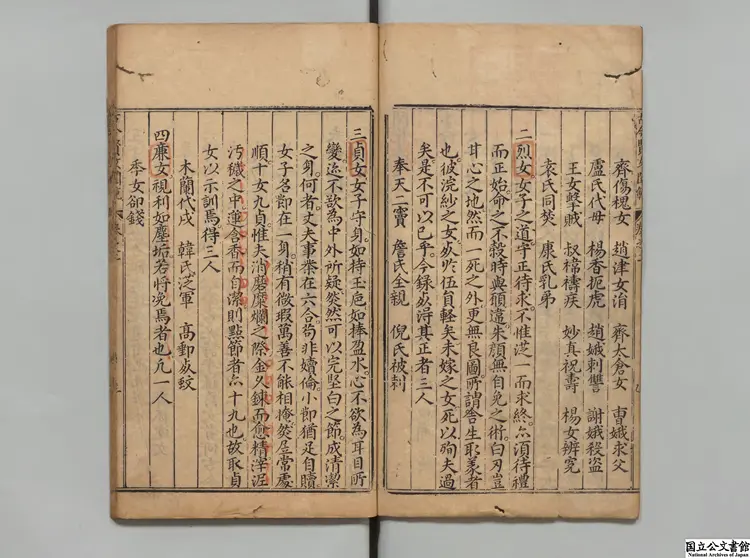 齊傷槐女 趙津女涓 齊太倉女 曹娥求父
盧氏代母 楊香扼虎 趙娥刺讐 謝娥殺盗
王女擊賊 叔禕禱疾 妙真祝壽 楊女辨冤
袁氏同焚 康氏乳弟
二烈女女子之道守正待求不惟從一而求終亦須待禮
而正始命之不穀時與願違朱顏無自免之術白刃豈
甘心之地然而一死之外更無良圖所謂舍生取義者
也彼浣紗之女死於伍員輕矣未嫁之女死以殉夫過
矣是不可以已乎今錄必得其正者三人
奉天二竇 詹氏全親 倪氏被刺
三貞女女子守身如持玉巵如捧盈水心不欲為耳目所
變迹不欲為中外所疑然然可以完堅白之節成清潔
之身何者丈夫事業在六合苟非嬻倫小節猶足自贖
女子名節在一身稍有微瑕萬善不能相掩然居常處
順十女九貞惟夫消磨糜爛之際金久鍊而愈精滓泥
汚穢之中蓮含香而自潔則點節者亦十九也故取貞
女以示訓焉得三人
木蘭代戍 韓氏從軍 高郵死蚊
四廉女視利如塵垢若將浼焉者也凡一人
季女卻錢
国立公文書館
National Archives of Japan